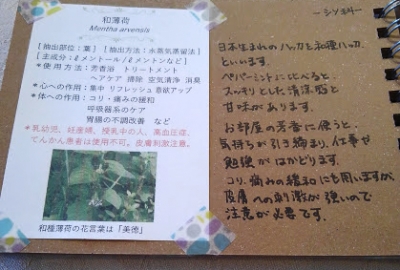 和薄荷
Mentha arvensis
[抽出部位:葉] [抽出方法:水蒸気蒸留法]
[主成分:ℓメントール/ℓメントンなど]
*使用方法:芳香浴 トリートメント
ヘアケア 掃除 空気清浄 消臭
*心への作用:集中 リフレッシュ 意欲アップ
*体への作用:コリ・痛みの緩和
呼吸器系のケア
胃腸の不調改善 など
*乳幼児、妊産婦、授乳中の人、高血圧症、
てんかん患者は使用不可。皮膚刺激注意。
和種薄荷の花言葉は「美徳」
〜シソ科〜
日本生まれのハッカを和種ハッカ
といいます。
ペパーミントにくらべると、
スッキリとした清涼感と
甘味があります。
お部屋の芳香に使うと、
気持ちが引き締まり、仕事や
勉強がはかどります。
コリ、痛みの緩和にも用いますが、
皮膚への刺激が強いので
注意が必要です。